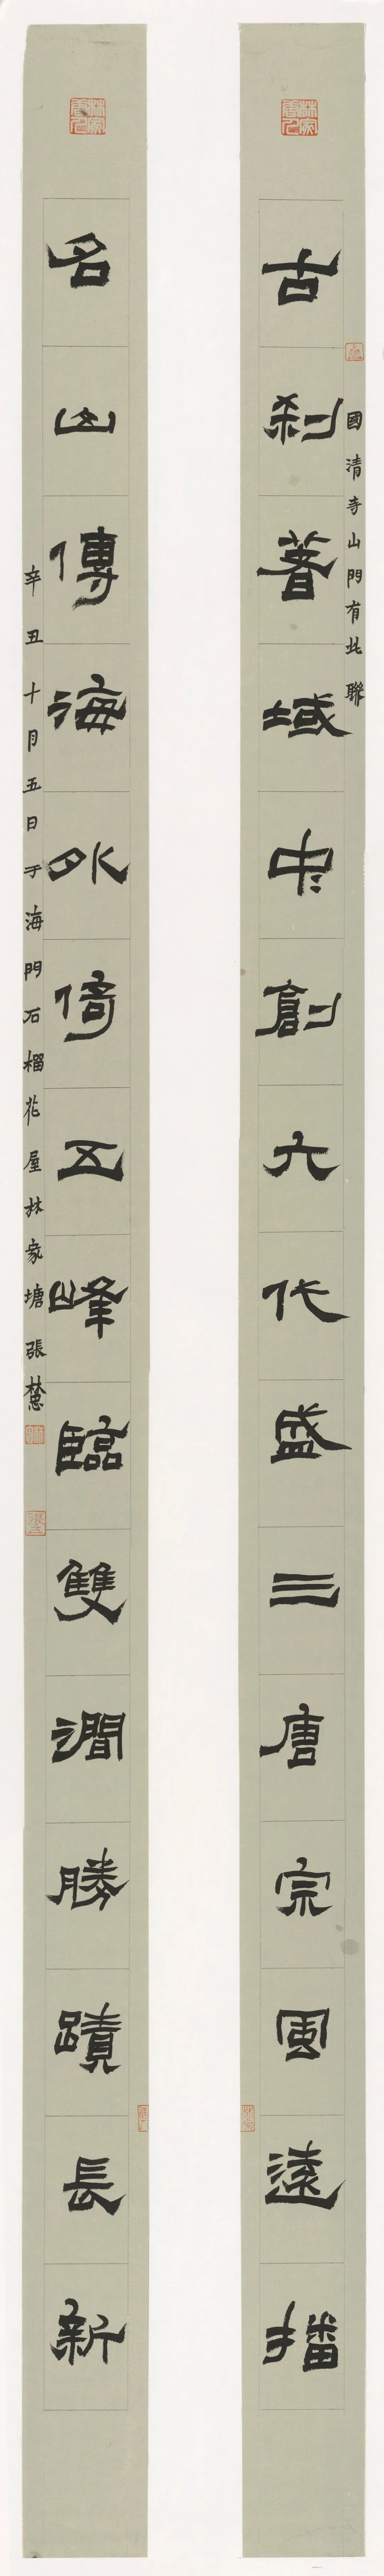 古剎著域中創六代盛三唐宗風遠播
國清寺山門有此聯
名山傳海外倚五峰臨雙澗勝蹟長新
辛丑十月五日于海門石榴花屋林家塘張